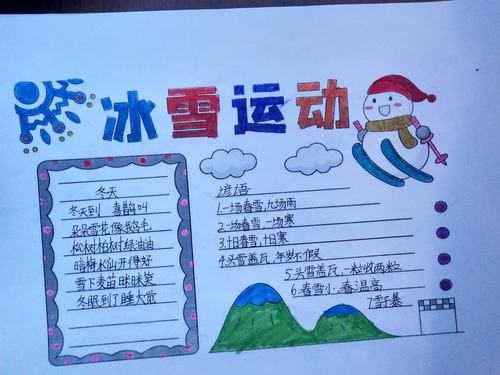 冰雪运动
冬天
冬天到 喜鹊叫
朵朵雪花像鹅毛
松树柏树绿油油
腊梅水仙开得好
雪下麦苗眯眯笑
冬眠到了睡大觉
谚语
1.一场春雪,九场南
2.一场春雪,一场寒
3.十日春雪,十日寒
4.头雪盖瓦,年岁不假
5.头雪盖瓦,一粒收两粒
6.春雪小,春温高
7雪子暴